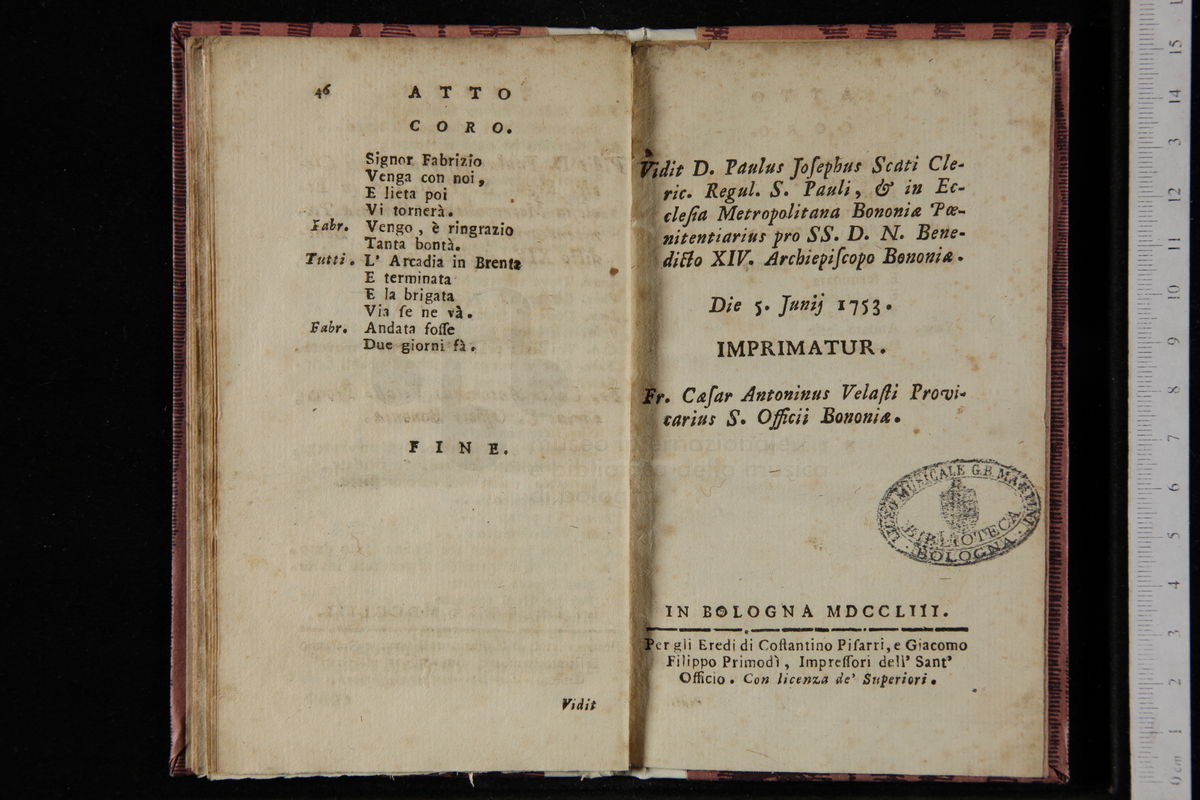 46 ATTO
CORO.
Signor Fabrizio
Venga con noi,
E lieta poi
Vi tornerà.
Fabr. Vengo, è ringrazio
Tanta bontà.
Tutti. L' Arcadia in Brenta
E terminata
E la brigata
Via ſe ne và.
Fabr. Andata foſſe
Due giorni fà.
FINE.
Vidit
Vidit D. Paulus Joſephus Scati Cle-
ric. Regul. S. Pauli, & in Ec-
cleſia Metropolitana Bononiæ Pœ-
nitentiarius pro SS. D. N. Bene-
dicto XIV. Archiepiſcopo Bononiæ.
Die 5. Junij 1753.
IMPRIMATUR.
Fr. Cæſar Antoninus Velaſti Provi-
carius S. Officii Bononiæ.
museo internazionale
e biblioteca della musica
LICEO MUSICALE G.B. MARTINI
BIBLIOTECA
BOLOGNA
IN BOLOGNA MDCCLIII.
Per gli Eredi di Coſtantino Piſarri, e Giacomo
Filippo Primodì, Impreſſori dell' Sant'
Officio. Con licenza de' Superiori.
15
14
13
12
11
10
9
8
7
6
5
4
3
2
1
0 cm